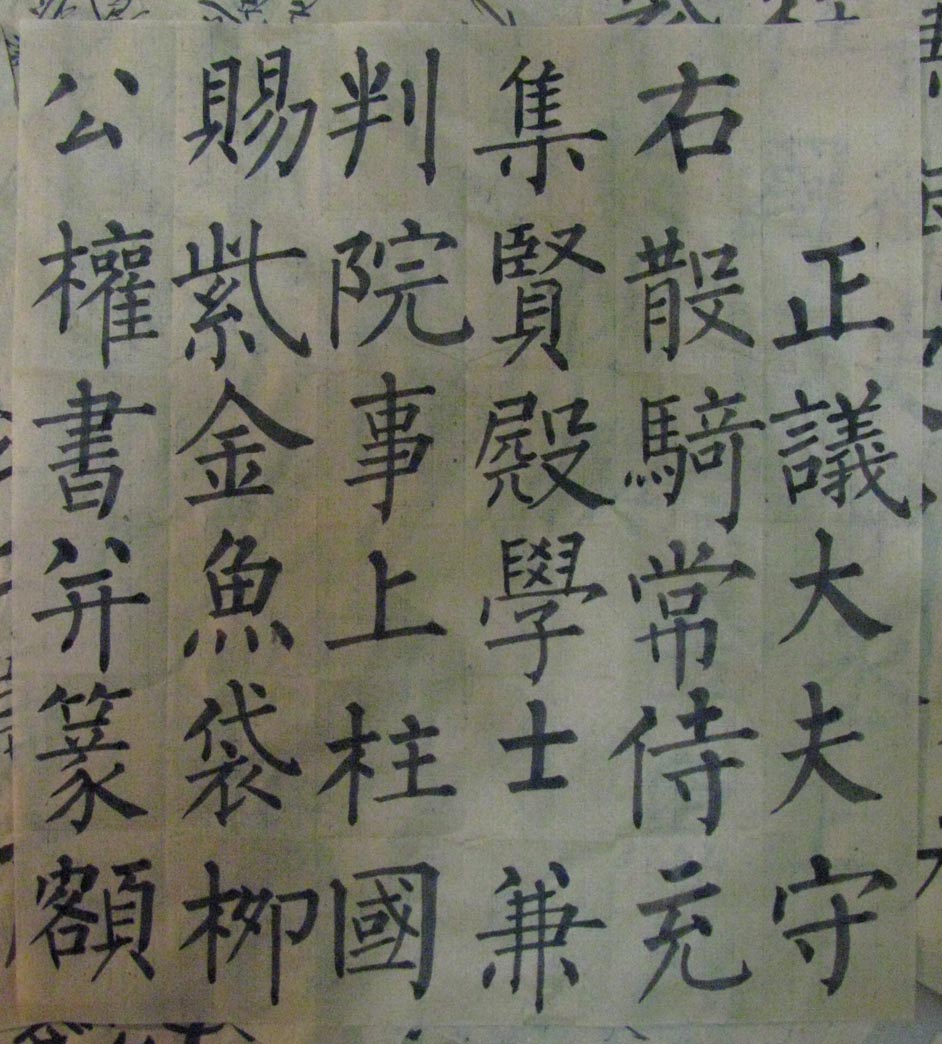 正議大夫守
右散騎常侍充
集賢殿學士兼
判院事上柱國
賜紫金魚袋柳
公權書并篆額